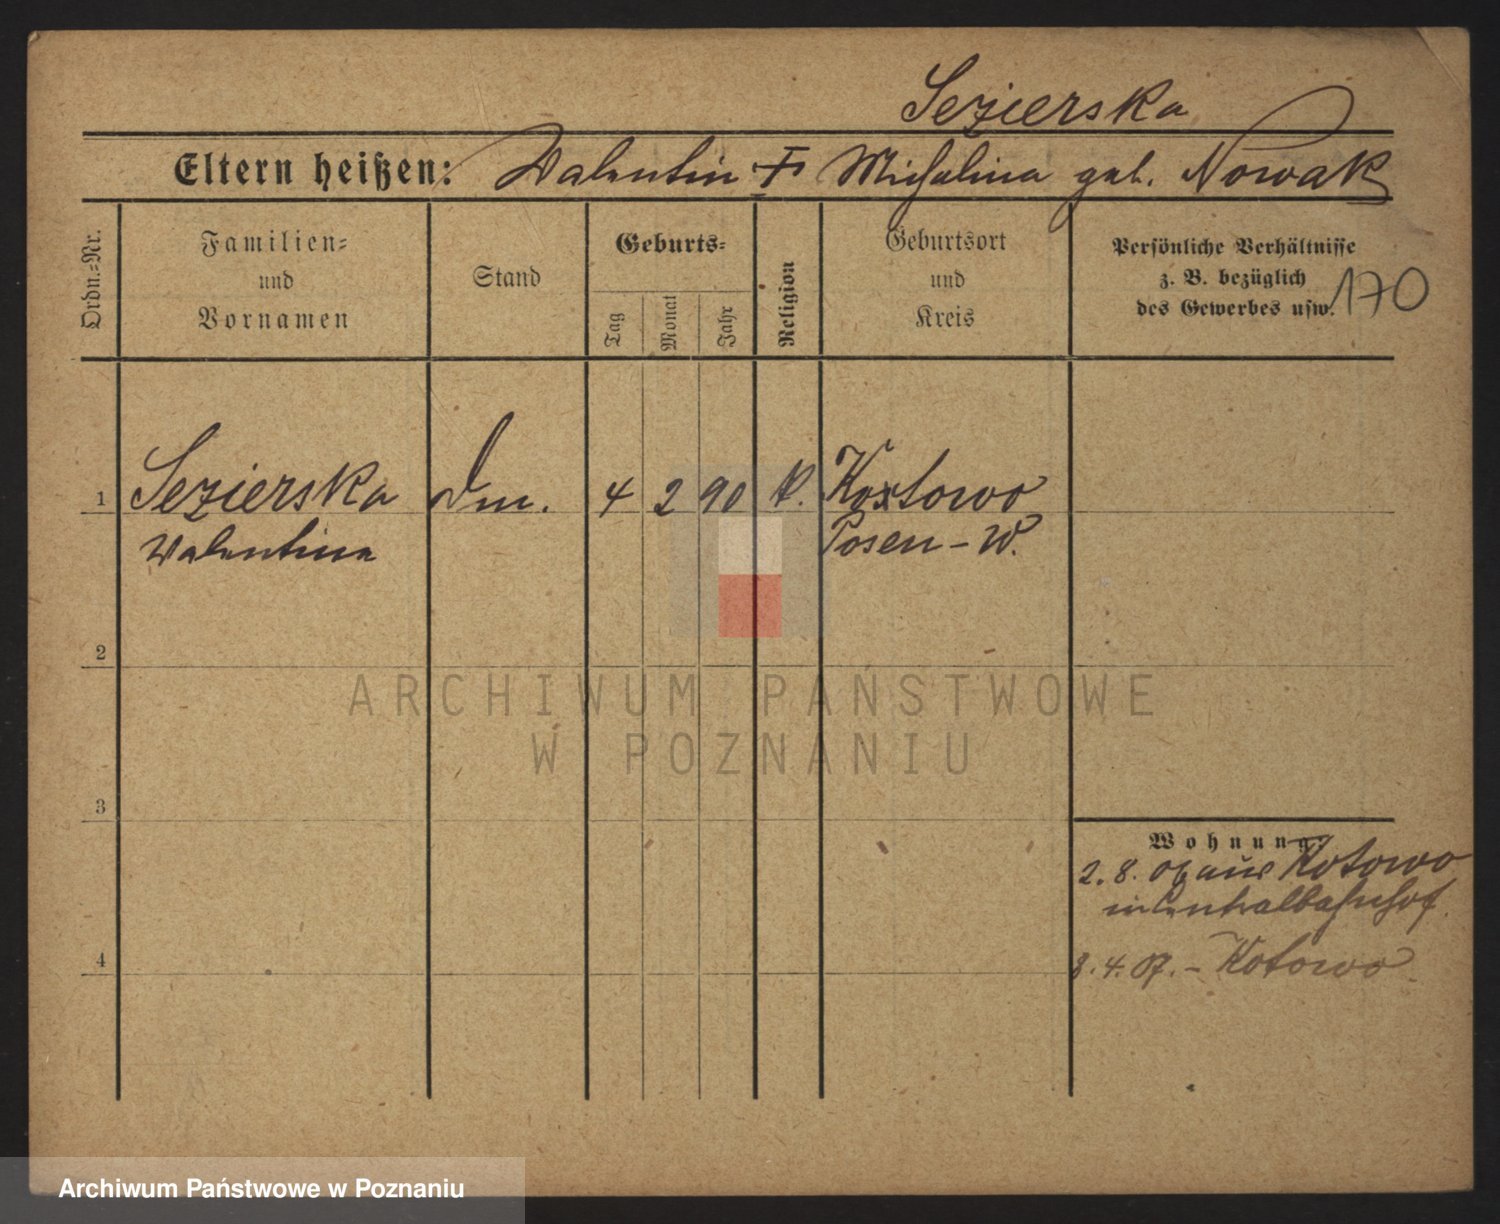 Jezierska
Eltern heißen: Valentin † Michalina geb. Nowak
Ordn.-Nr.
Familien-
und
Vornamen
Stand
Geburts-
Tag
Monat
Jahr
Religion
Geburtsort
und
Kreis
Persönliche Verhältnisse
z. B. bezüglich
des Gewerbes usw.
170
1 Jezierska Dm. 4 2 90 k. Kotowo
Valentina Posen-W.
2
3
4
Wohnung:
2. 8. 06 aus Kotowo
in Centralbahnhof.
3. 4. 07. - Kotowo
ARCHIWUM PAŃSTWOWE
W POZNANIU
Archiwum Państwowe w Poznaniu